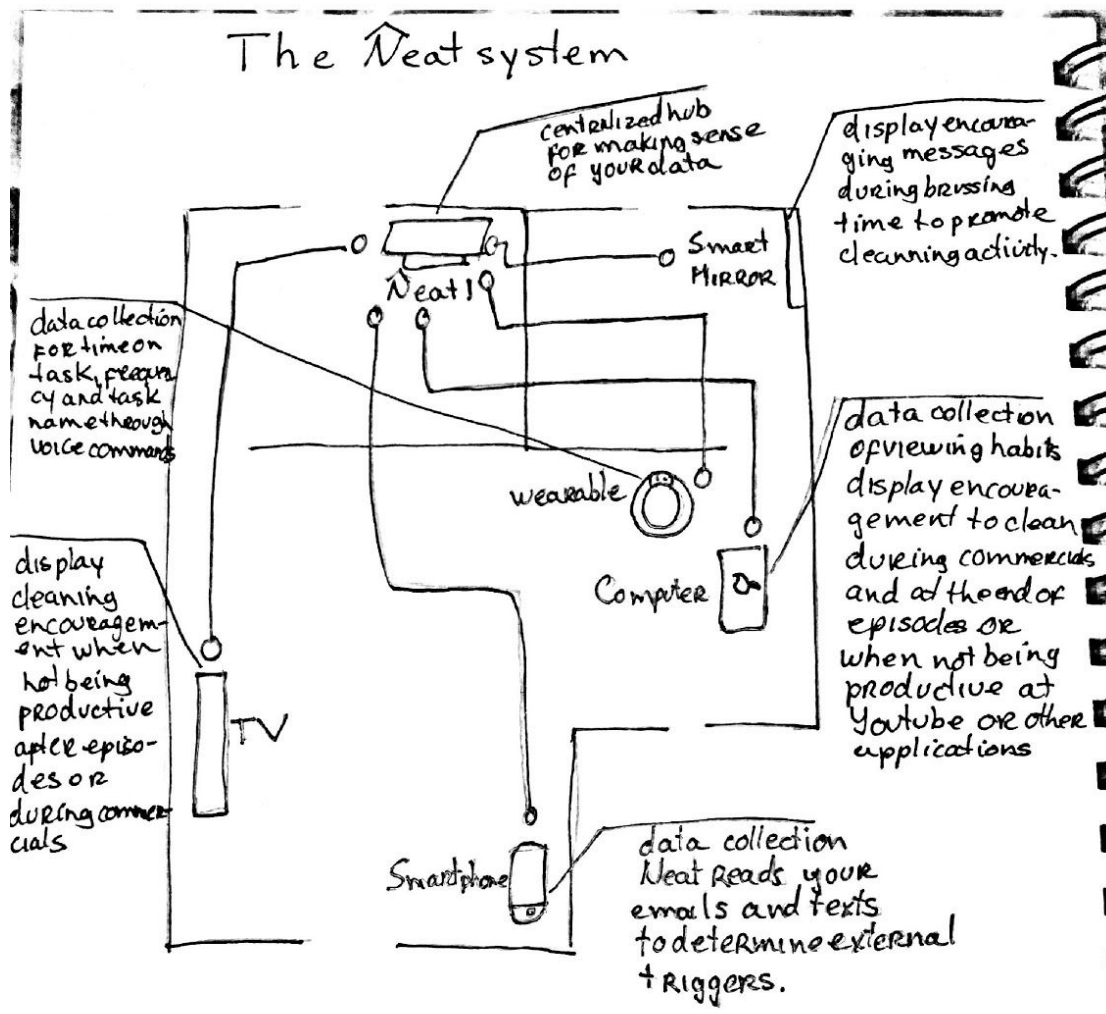 The Neat system
centralized hub
for making sense
of your data
display encoura-
ging messages
during brussing
time to promote
cleanning activity.
Smart
Mirror
Neat!
data collection
for time on
task, frequen
cy and task
name through
voice commands
wearable
data collection
of viewing habits
display encoura-
gement to clean
during commercials
and at the end of
episodes or
when not being
productive at
Youtube or other
applications
Computer
display
cleaning
encouragem-
ent when
not being
productive
after episo-
des or
during commer-
cials
TV
Smartphone
data collection
Neat reads your
emails and texts
to determine external
triggers.